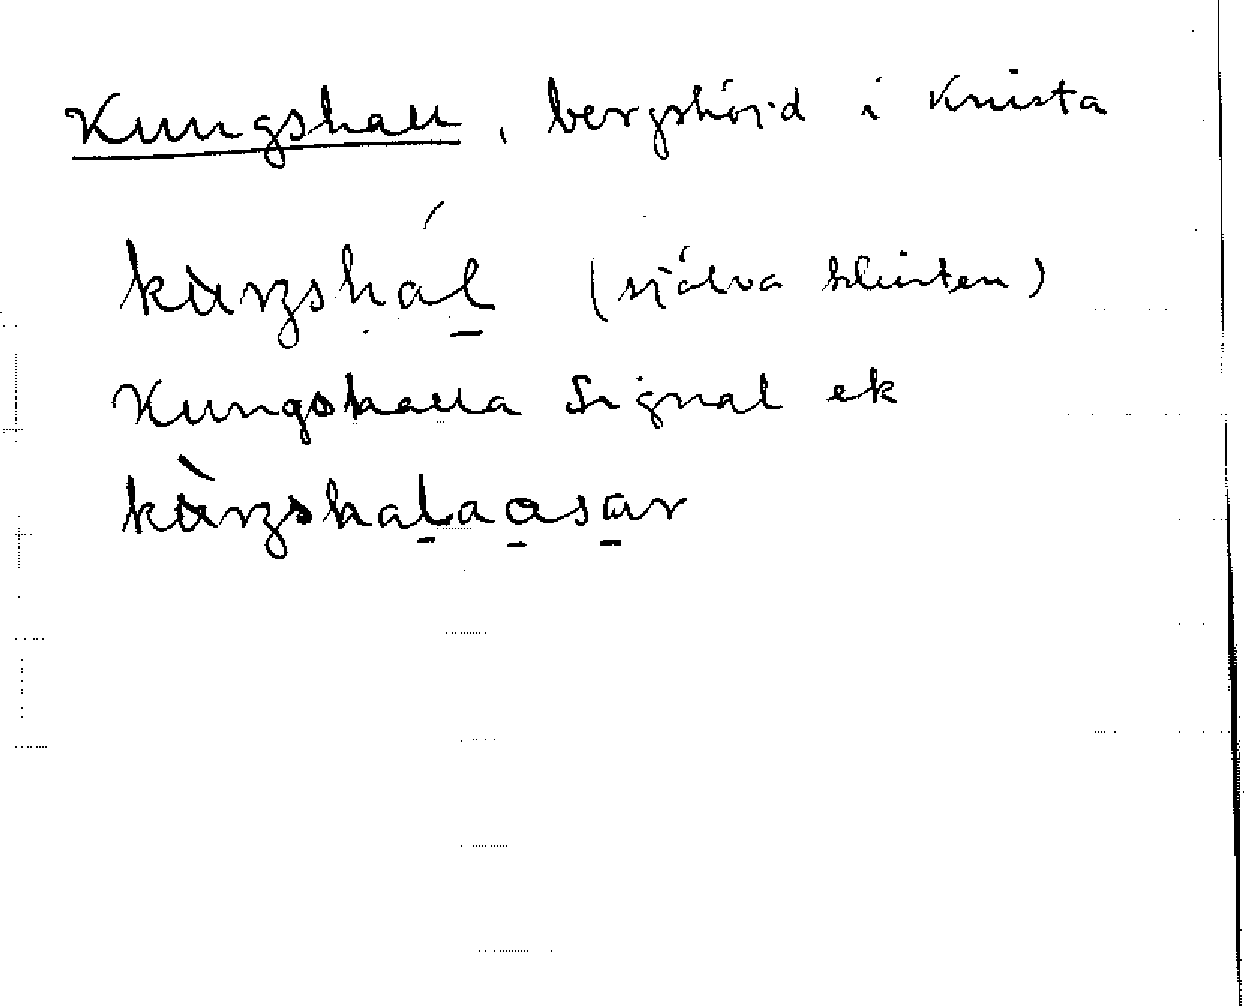 Kungshall, bergshöjd i Knista
kùŋshál (själva klinten)
Kungshalla Signal ek
kùŋshalaåsar